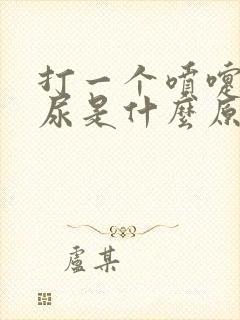 打一个喷嚏
尿是什麼原
盧某